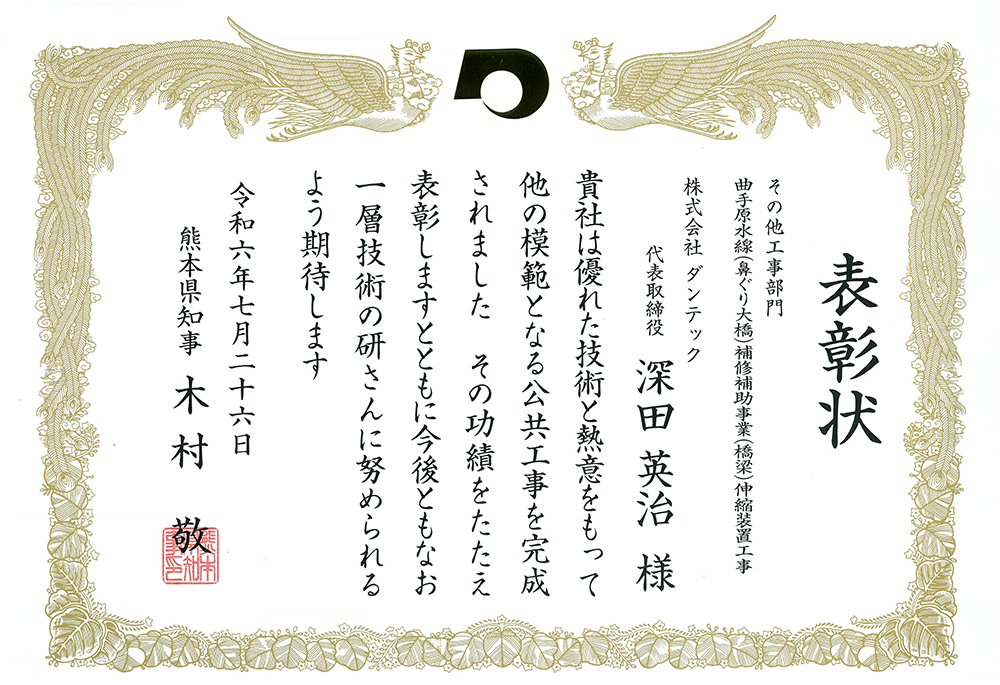 表彰状
その他工事部門
曲手原水線(鼻ぐり大橋)補修補助事業(橋梁)伸縮装置工事
株式会社 ダンテック
代表取締役 深田 英治 様
貴社は優れた技術と熱意をもって
他の模範となる公共工事を完成
されました その功績をたたえ
表彰しますとともに今後ともなお
一層技術の研さんに努められる
よう期待します
令和六年七月二十六日
熊本県知事 木村 敬
熊本県知事之印